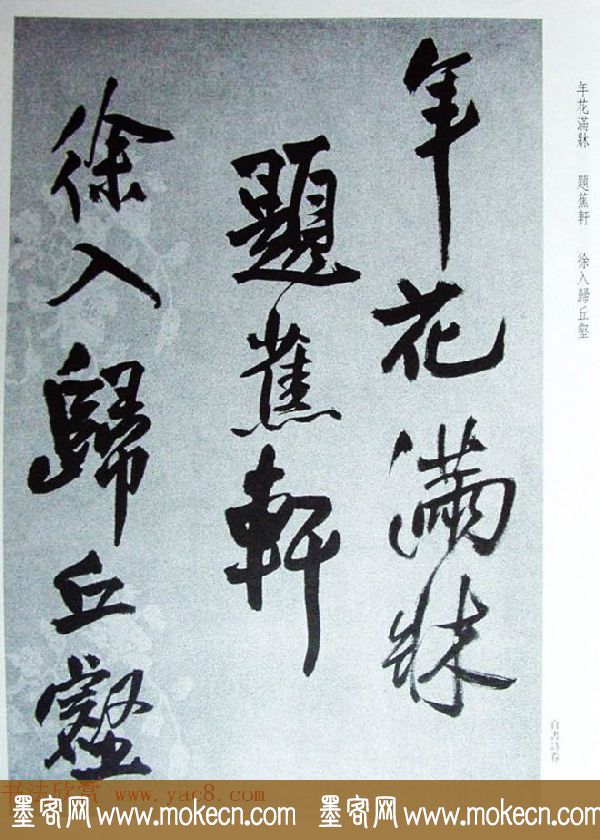 年花滿牀
題蕉軒
徐入歸丘壑
年花滿牀 題蕉軒 徐入歸丘壑
自書詩卷
书法欣赏 www.yac8.com
墨客网 www.mokecn.com 墨客网 www.mokecn.com